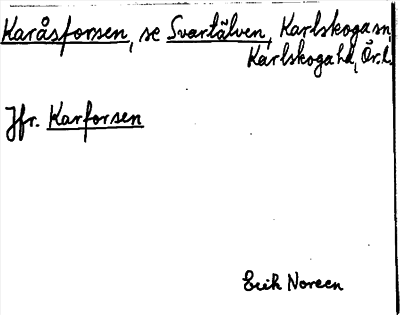 Karåsforsen, se Svartälven, Karlskoga sn,
Karlskoga hd, Ör. l.
Jfr. Karforsen
Erik Noreen